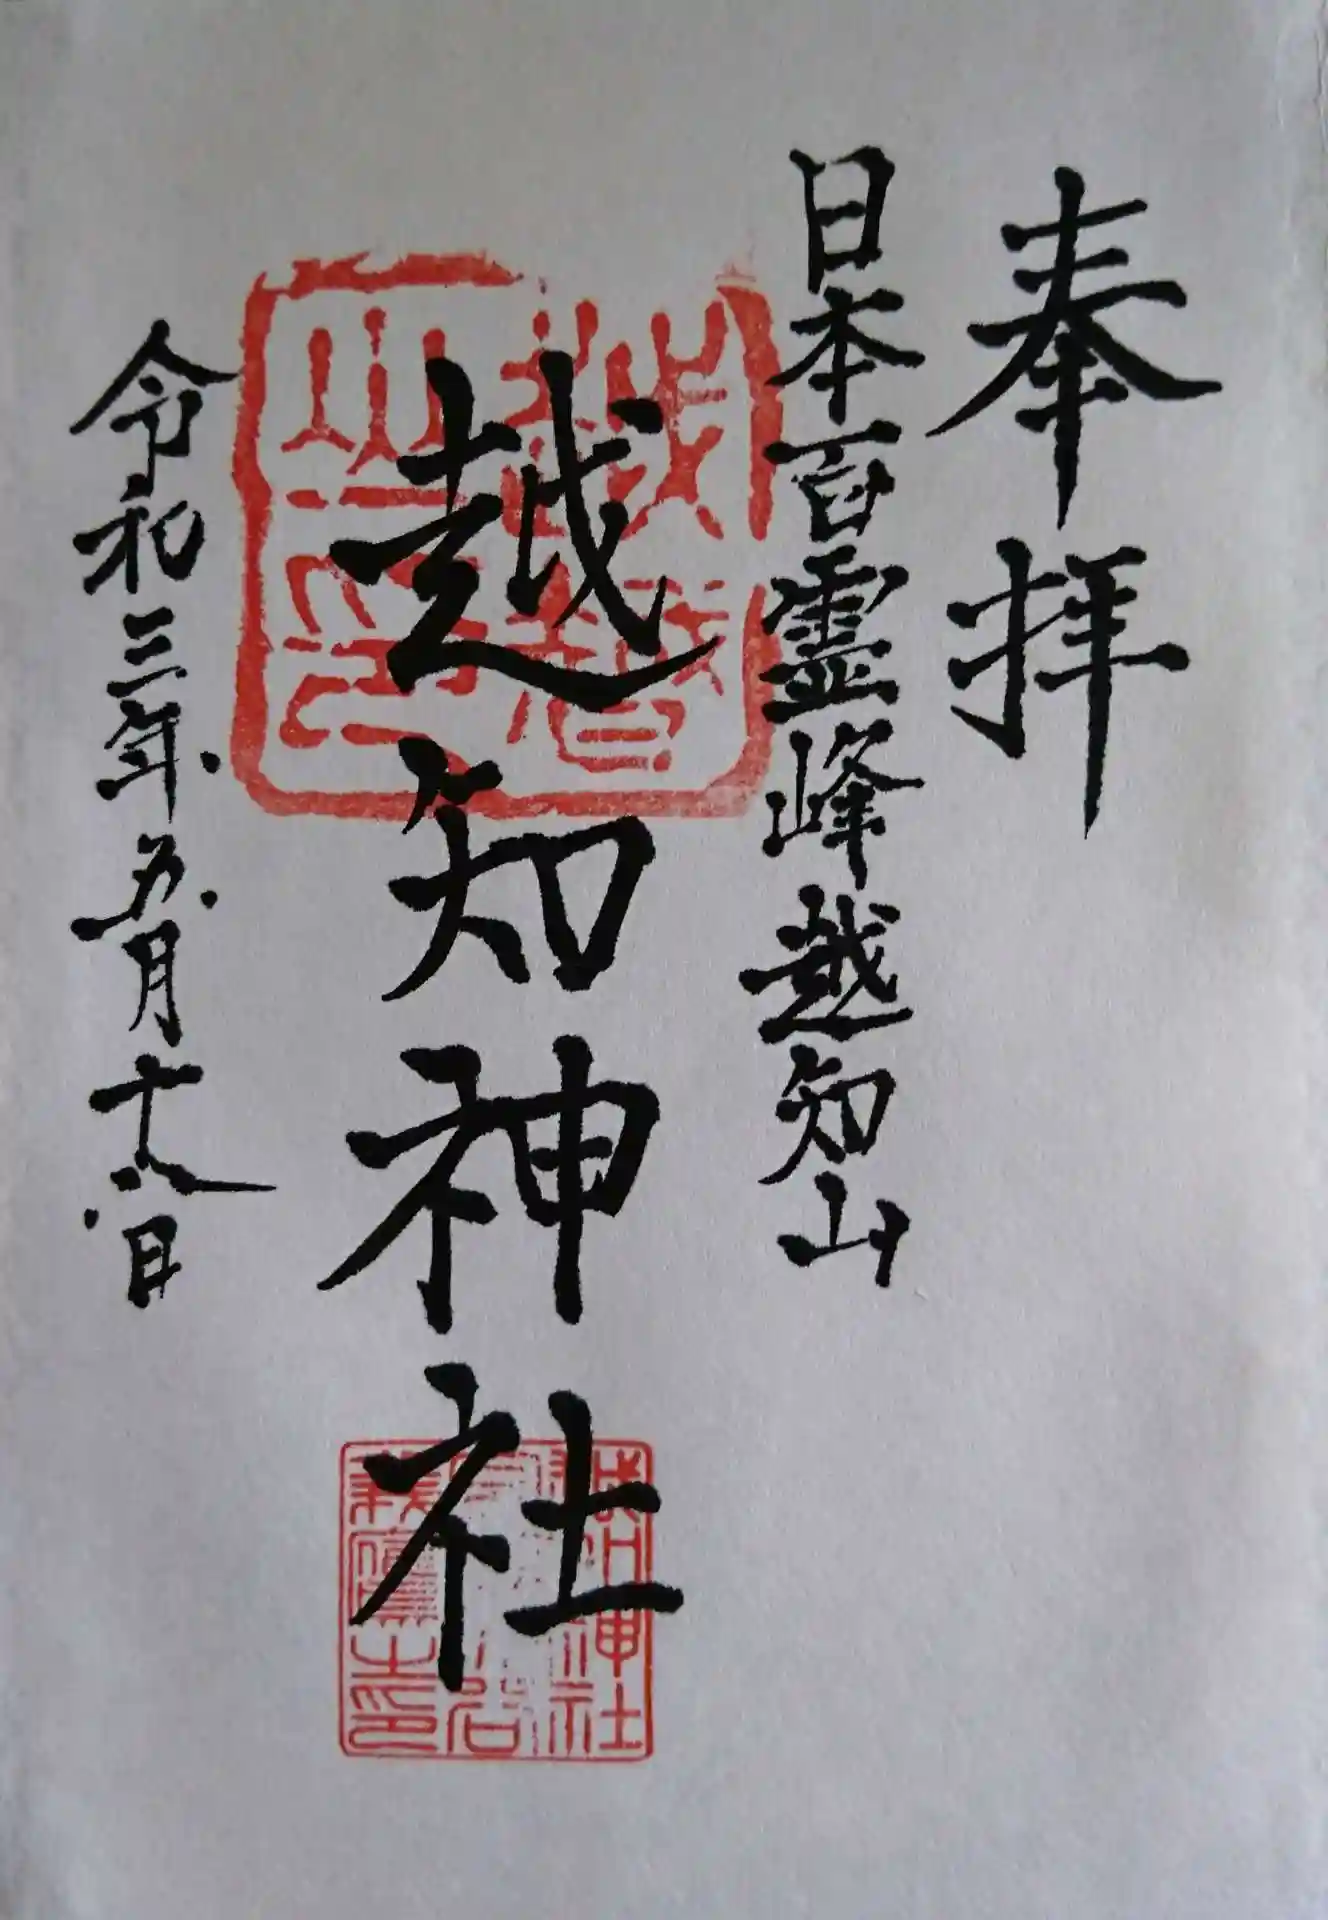 奉拝
日本百霊峰越知山
越知神社
令和三年五月十八日